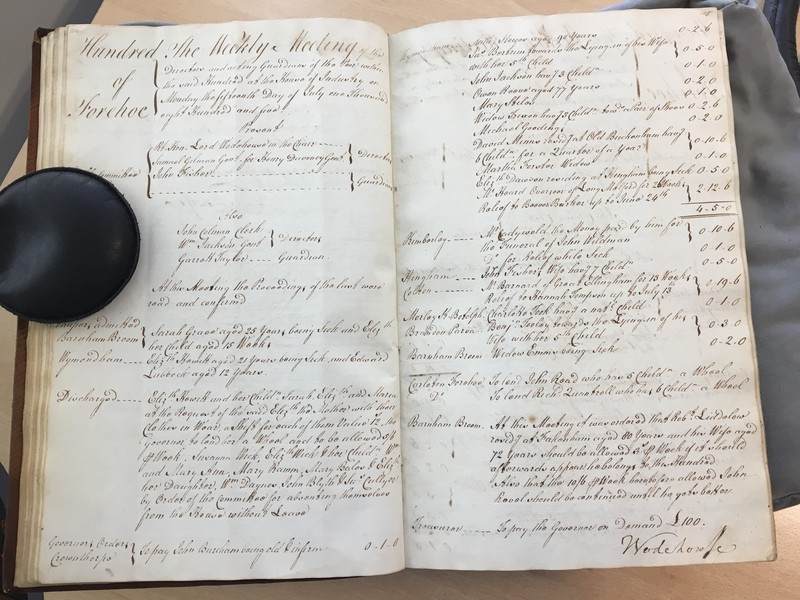 Hundred
of
Forehoe
The Weekly Meeting of the
Directors and acting Guardians of the Poor within
the said Hundred at the House of Industry on
Monday the fifteenth Day of July one Thousand
eight Hundred and five
Present
At Hon. Lord Wodehouse in the Chair
Samuel Gilman Gent. for Henry Gent
John Fisher
Directors
Guardians
Also
John Colman Clerk
Wm. Jackson Gent
Directors
Garrott Taylor Guardian
At this Meeting the Proceedgs. of the last were
read and confirmed
Barnham Broom
Sarah Graves aged 25 Years being Sick and Elizth
her Child aged 15 Weeks
Wymondham Elizth Howett aged 21 Years being Sick and Edward
Lubbock aged 12 Years
Discharged Elizth Howett and her Childn. Sarah, Elizth and Maria
at the Request of the said Elizth the Mother with their
Clothes in Wear, a Shift for each of them Value
Governor to lend her a Wheel and to be allowed
P Week, Susanna Wick, Elizth Wick & her Childn. Wm
and Mary Ann, Mary Ramm, Mary Bales & Elizth
her Daughter, Wm Daynes John Blyth &
by Order of the Committee for absenting themselves
from the House without Leave
Governors Orders
Crownthorpe
To pay John Burcham being old & infirm 0-1-0
aged 90 Years 0-2-6
towards the Lying in of his Wife
with her 5th Child 0-5-0
John Jackson hav'g 3 Childn 0-1-0
Owen Reeve aged 77 Years 0-2-0
Mary Bales 0-1-0
Widow hav'g 3 Childn. towds a Pair of Shoes 0-2-6
Michael Gooding 0-2-0
David Minns resid'g at Old Buckenham hav'g
6 Childn. for a Quarter of a Year 0-10-6
Martha Forster Widow 0-1-0
Elizth Dawson residing at Hingham being Sick 0-5-0
Mr. Heard Overseer of Long for 2 Weeks
Relief to Bucker up to June 24th 2-12-6
4-5-0
Kimberley Mr. Cadywold the Money paid by him for
the Funeral of John Wildman 0-10-6
Do. for Relief while Sick 0-1-0
Hingham John Fishers Wife hav'g 7 Childn 0-5-0
Colton Mr. Barnard of Great Ellingham for 13 Weeks
Relief to Hannah Simpson up to July 13th 0-19-6
Morley St. Botolph Charlotte Cock hav'g a nat. Child 0-1-0
Brandon Parva Benj. Tooley towards the Lying in of his
Wife with her 5th Child 0-3-0
Barnham Broom Widow Emms being Sick 0-2-0
Carleton Forehoe To lend John Read who has 5 Childn. a Wheel
Do. To lend Richd. Quantrell who has 6 Childn. a Wheel
Barnham Broom. At this Meeting it was ordered that Robt.
resid'g at Fakenham aged 80 Years and his Wife aged
72 Years should be allowed P Week if it should
afterwards appear he belongs to the Hundred
Also that the 10/6 P Week heretofore allowed John
Revel should be continued until he gets better.
Treasurer To pay the Governor on Demand £100:
Wodehouse